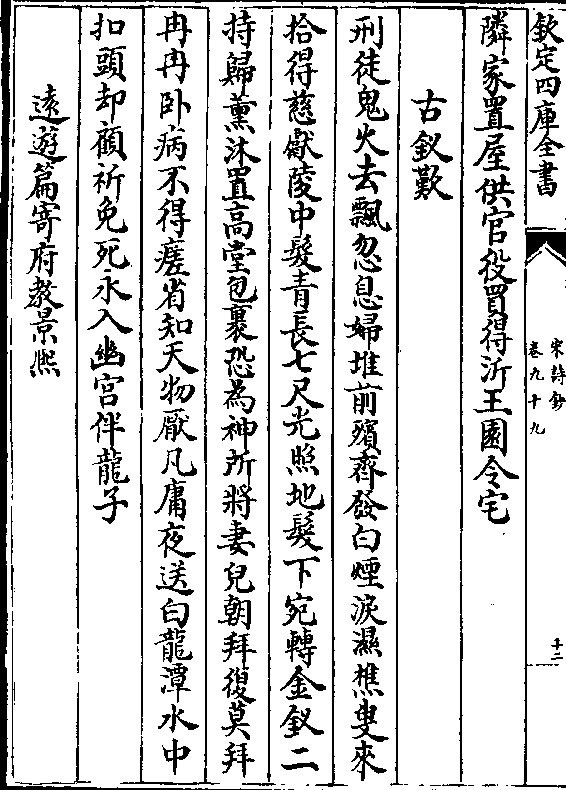 欽定四庫全書
宋詩鈔
卷九十九
十二
隣家置屋供官役買得沂王園令宅
古釵歎
刑徒鬼火去飄忽息婦堆前殯齊發白煙淚濕樵叟來
拾得慈獻陵中髮青長七尺光照地髮下宛轉金釵二
持歸薰沐置高堂包裹恐為神所將妻兒朝拜復莫拜
冉冉卧病不得瘥省知天物厭凡庸夜送白龍潭水中
扣頭却顧祈免死永入幽宮伴龍子
遠遊篇寄府教景熙